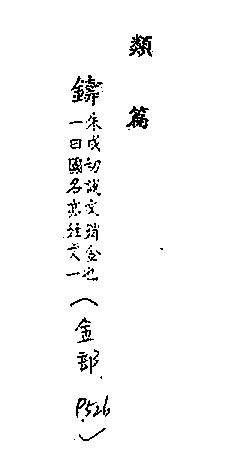 類篇
鑄朱戍切說文銷金也
一曰國名亦姓文一
(金部 P.526)